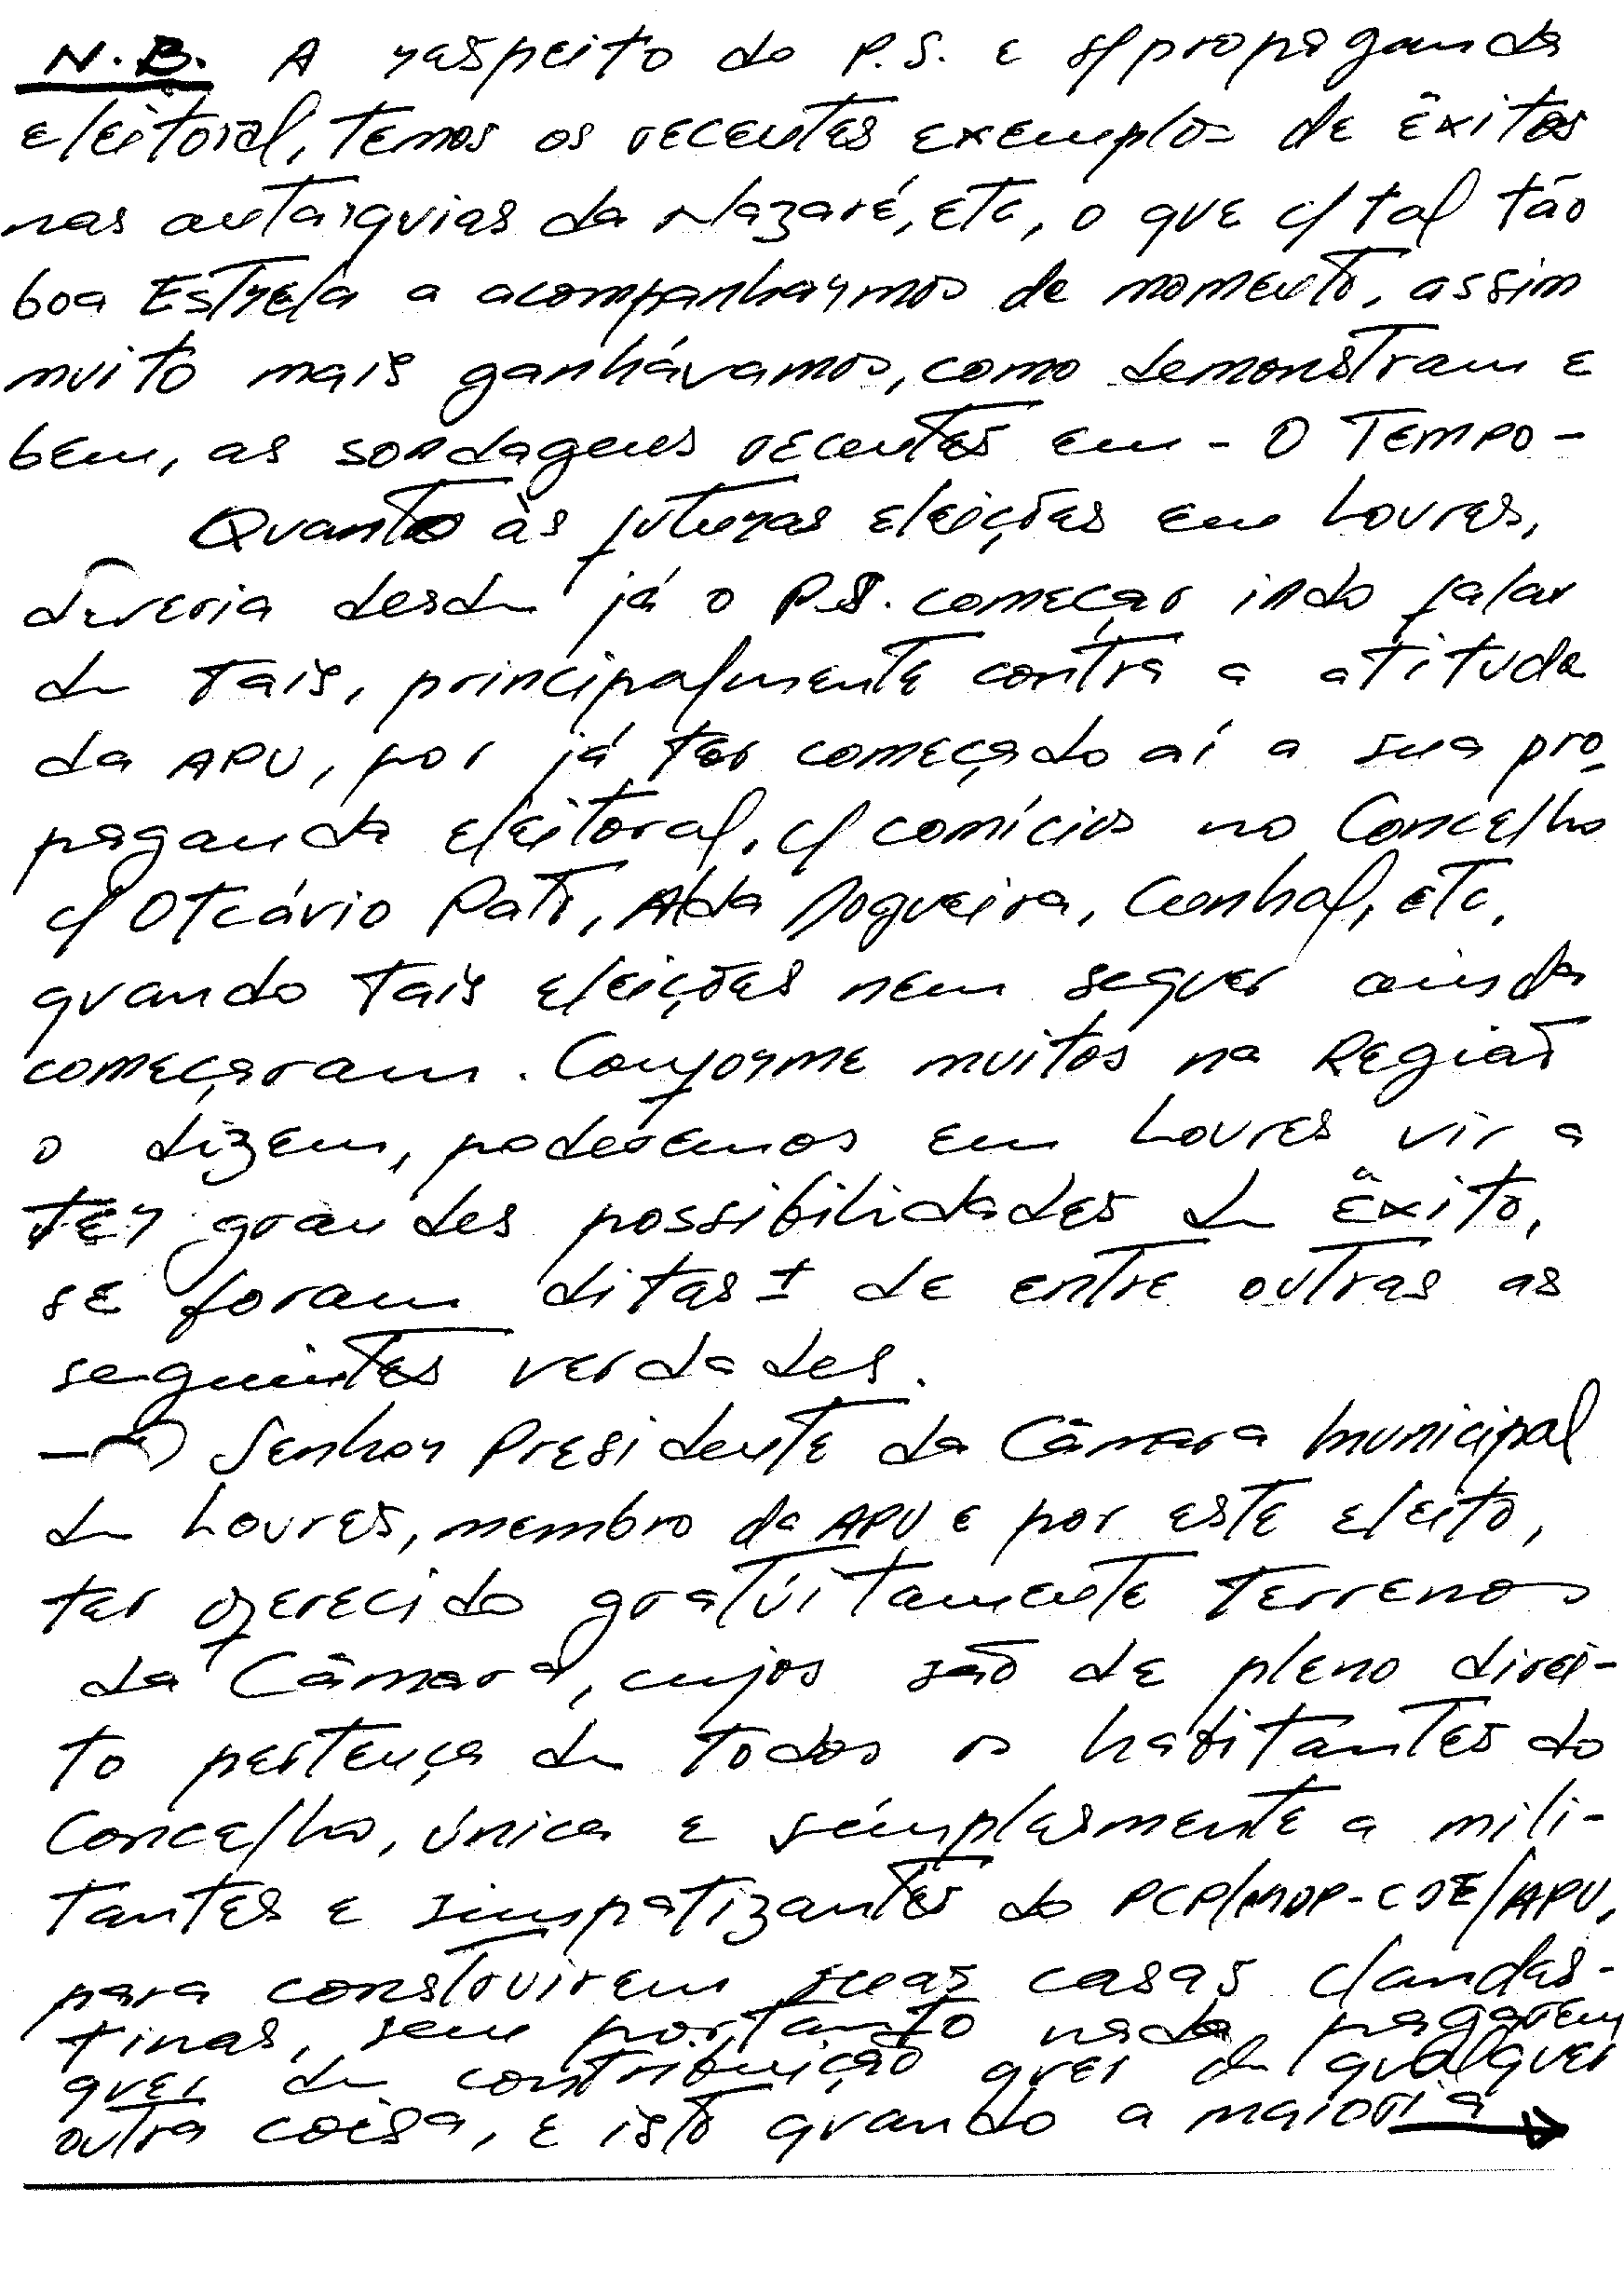 N.B. A respeito do P.S. e s/propaganda
eleitoral, temos os recentes exemplos de êxitos
nas autarquias da Nazaré, etc, o que c/ tal tão
boa Estrela a acompanharmos de momento, assim
muito mais ganhávamos, como demonstram e
bem, as sondagens recentes em - O TEMPO -
Quanto às futuras eleições em Loures,
deveria desde já o P.S. começar indo falar
de tais, principalmente contra a atitude
da APU, por já ter começado aí a sua pro-
paganda eleitoral, c/ comícios no Concelho
c/ Otcávio Pato, Alda Nogueira, Cunhal, etc,
quando tais eleições nem sequer ainda
começaram. Conforme muitos na Região
o dizem, poderemos em Loures vir a
ter grandes possibilidades de êxito,
se foram ditas ± de entre outras as
seguintes verdades.
— Senhor Presidente da Câmara Municipal
de Loures, membro da APU e por este eleito,
ter oferecido gratúitamente terrenos
da Câmara, cujos são de pleno direi-
to pertença de todos os habitantes do
Concelho, única e simplesmente a mili-
tantes e simpatizantes do PCP/MDP-CDE/APU,
para construirem suas casas clandes-
tinas, sem portanto nada pagarem
quer de contribuição quer de qualquer
outra coisa, e isto quando a maioria →